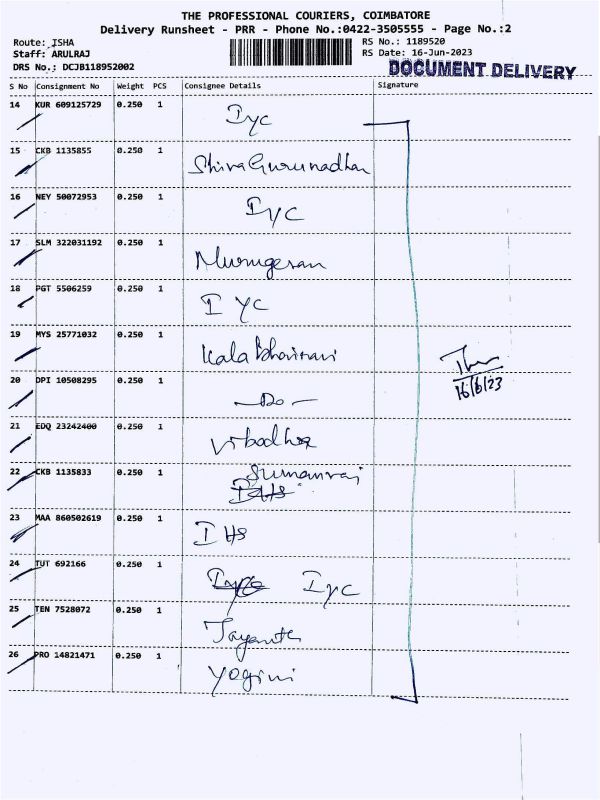 THE PROFESSIONAL COURIERS, COIMBATORE
Delivery Runsheet - PRR - Phone No.:0422-3505555 - Page No.:2
Route: ISHA
Staff: ARULRAJ
DRS No.: DCJB118952002
RS No.: 1189520
RS Date: 16-Jun-2023
DOCUMENT DELIVERY
S No Consignment No Weight PCS Consignee Details Signature
14 KUR 609125729 0.250 1 Iyc
15 CKB 1135855 0.250 1 Shivagurunadhan
16 NEY 50072953 0.250 1 IYC
17 SLM 322031192 0.250 1 Murugesan
18 PGT 5506259 0.250 1 I YC
19 MYS 25771032 0.250 1 Kala Bhairavi
20 DPI 10508295 0.250 1 -Do-
16/6/23
21 EDQ 23242400 0.250 1 Vibodha
22 CKB 1135833 0.250 1 Sumanraj
IHS
23 MAA 860502619 0.250 1 IHS
24 TUT 692166 0.250 1 Iyc
25 TEN 7528072 0.250 1 Jayanth
26 PRO 14821471 0.250 1 Yogini